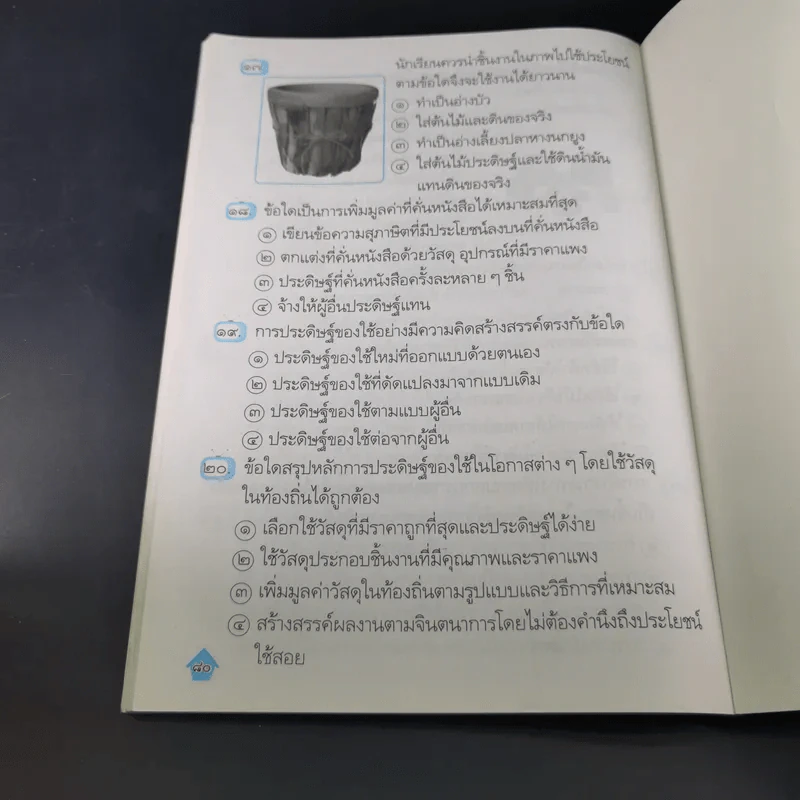 ๑๗. นักเรียนควรนำชิ้นงานในภาพไปใช้ประโยชน์
ตามข้อใดจึงจะใช้งานได้ยาวนาน
๑ ทำเป็นอ่างบัว
๒ ใส่ต้นไม้และดินของจริง
๓ ทำเป็นอ่างเลี้ยงปลาหางนกยูง
๔ ใส่ต้นไม้ประดิษฐ์และใช้ดินน้ำมัน
แทนดินของจริง
๑๘. ข้อใดเป็นการเพิ่มมูลค่าที่คั่นหนังสือได้เหมาะสมที่สุด
๑ เขียนข้อความสุภาษิตที่มีประโยชน์ลงบนที่คั่นหนังสือ
๒ ตกแต่งที่คั่นหนังสือด้วยวัสดุ อุปกรณ์ที่มีราคาแพง
๓ ประดิษฐ์ที่คั่นหนังสือครั้งละหลาย ๆ ชิ้น
๔ จ้างให้ผู้อื่นประดิษฐ์แทน
๑๙. การประดิษฐ์ของใช้อย่างมีความคิดสร้างสรรค์ตรงกับข้อใด
๑ ประดิษฐ์ของใช้ใหม่ที่ออกแบบด้วยตนเอง
๒ ประดิษฐ์ของใช้ที่ดัดแปลงมาจากแบบเดิม
๓ ประดิษฐ์ของใช้ตามแบบผู้อื่น
๔ ประดิษฐ์ของใช้ต่อจากผู้อื่น
๒๐. ข้อใดสรุปหลักการประดิษฐ์ของใช้ในโอกาสต่าง ๆ โดยใช้วัสดุ
ในท้องถิ่นได้ถูกต้อง
๑ เลือกใช้วัสดุที่มีราคาถูกที่สุดและประดิษฐ์ได้ง่าย
๒ ใช้วัสดุประกอบชิ้นงานที่มีคุณภาพและราคาแพง
๓ เพิ่มมูลค่าวัสดุในท้องถิ่นตามรูปแบบและวิธีการที่เหมาะสม
๔ สร้างสรรค์ผลงานตามจินตนาการโดยไม่ต้องคำนึงถึงประโยชน์
ใช้สอย
๘๐